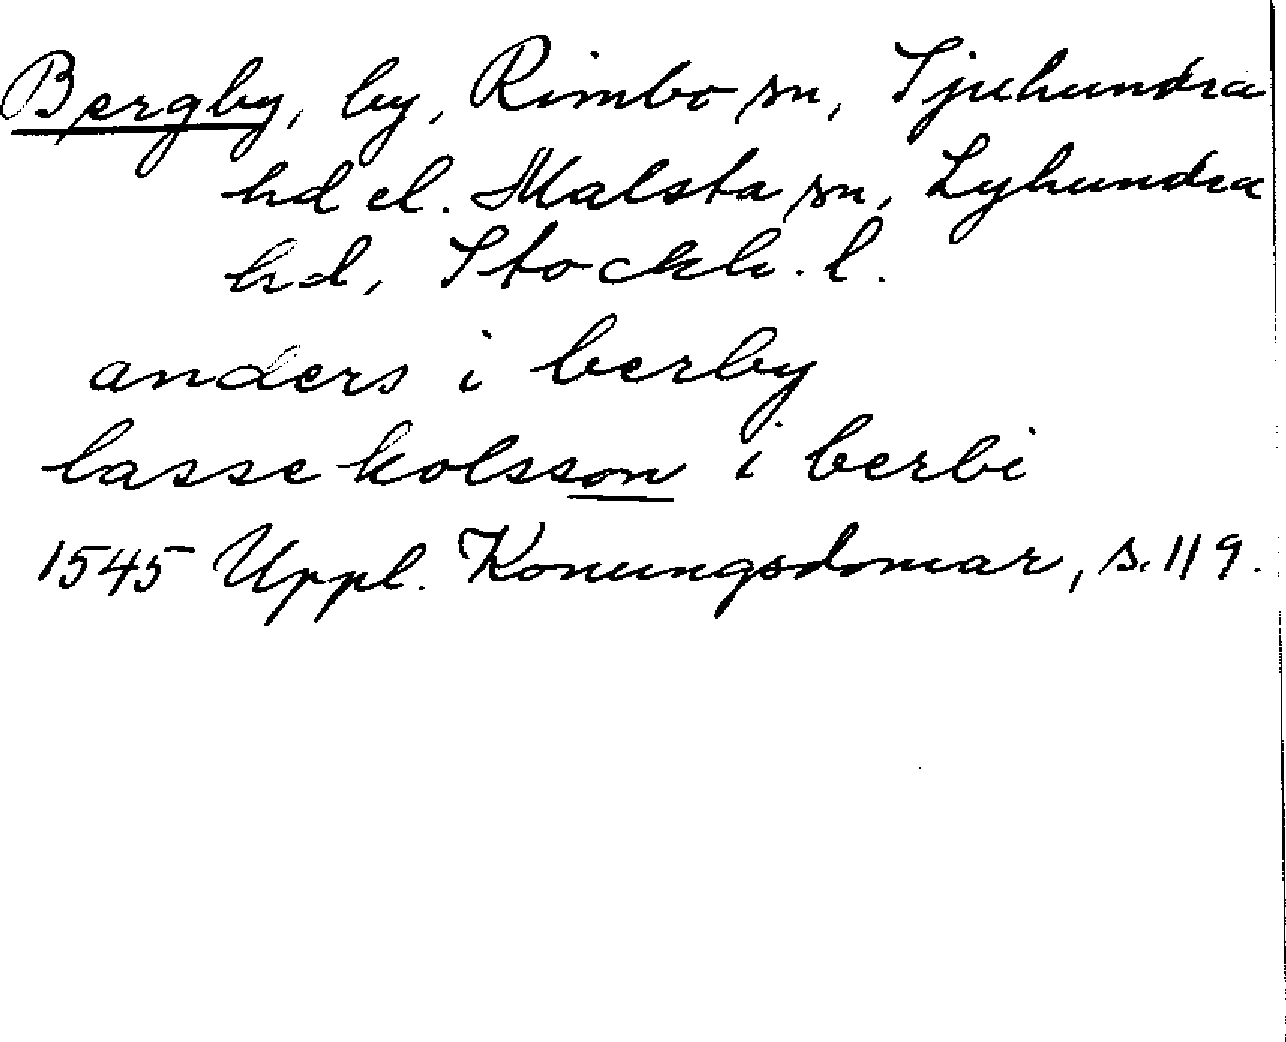 Bergby, by, Rimbo sn, Sjuhundra
hd el. Malsta sn, Lyhundra
hd, Stockh. l.
anders i berby
lasse kolsson i berbi
1545 Uppl. Konungsdomar, s. 119.